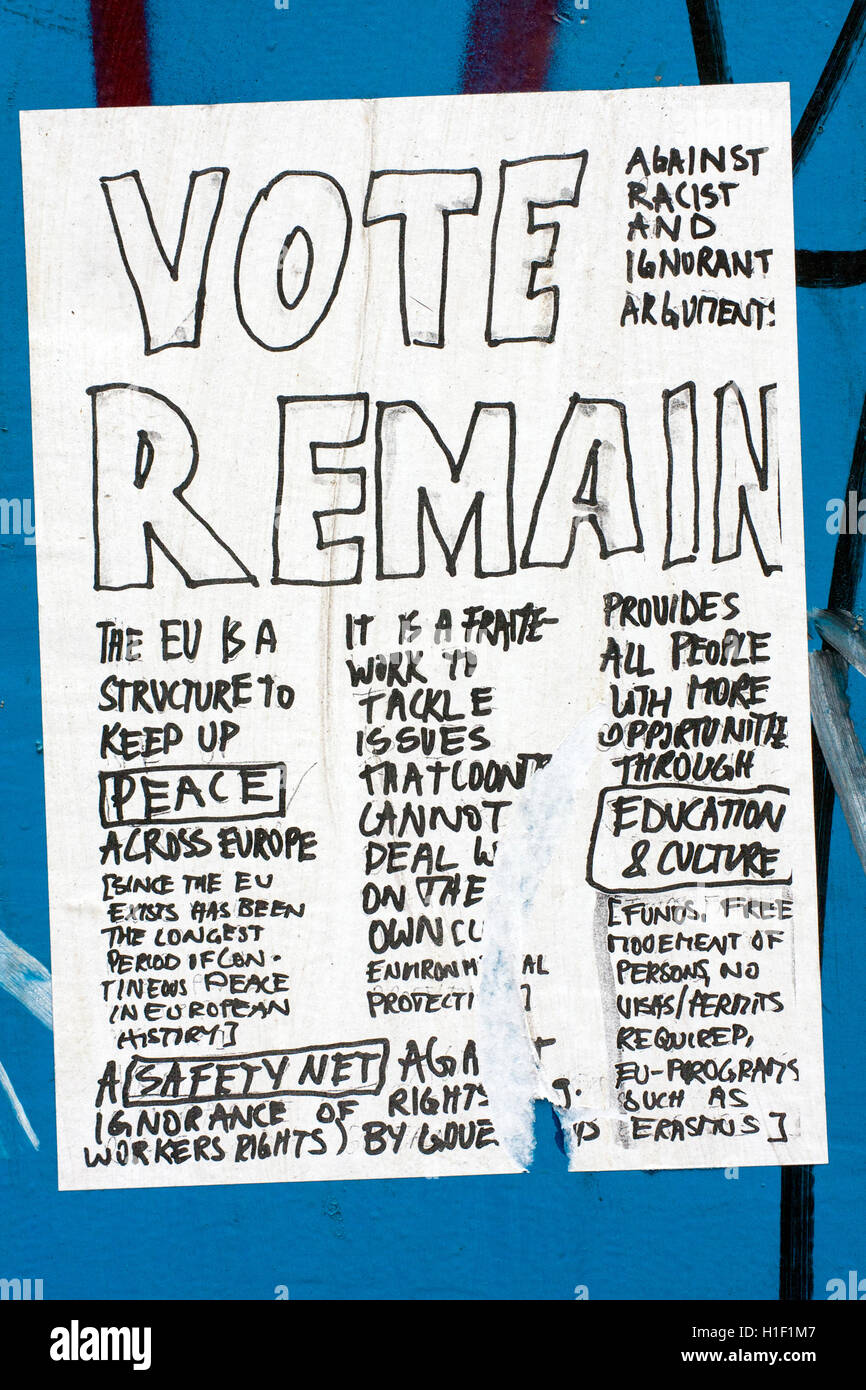 VOTE
REMAIN
AGAINST
RACIST
AND
IGNORANT
ARGUMENTS
THE EU IS A
STRUCTURE TO
KEEP UP
PEACE
ACROSS EUROPE
[SINCE THE EU
EXISTS HAS BEEN
THE LONGEST
PERIOD OF CON-
TINEOUS PEACE
IN EUROPEAN
HISTORY]
IT IS A FRAME-
WORK TO
TACKLE
ISSUES
THAT
CANNOT
DEAL
ON THE
OWN
PROVIDES
ALL PEOPLE
WITH MORE
OPPORTUNITIES
THROUGH
EDUCATION
& CULTURE
[FUNDS, FREE
MOVEMENT OF
PERSONS, NO
VISAS/PERMITS
REQUIRED,
EU-PROGRAMS
SUCH AS
ERASMUS]
A SAFETY NET
IGNORANCE OF RIGHTS
WORKERS RIGHTS) BY
alamy
Image ID: H1F1M7
www.alamy.com